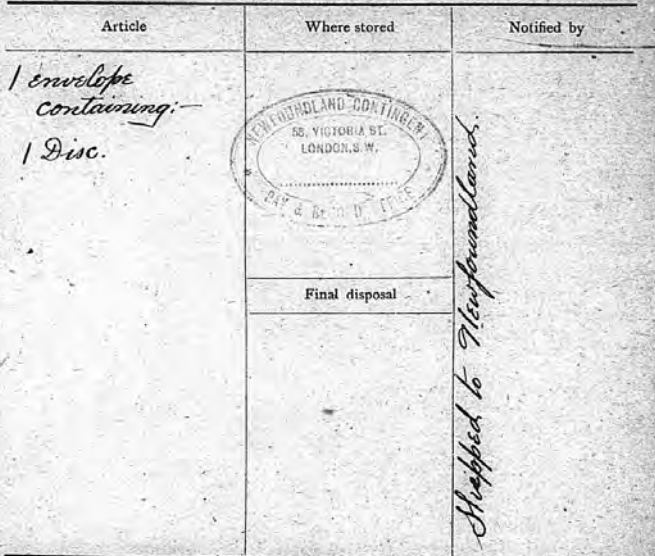 Article
Where stored
Notified by
1 envelope
containing:—
1 Disc.
NEWFOUNDLAND CONTINGENT
58, VICTORIA ST.
LONDON, S.W.
PAY & RECORD OFFICE
Final disposal
Shipped to Newfoundland.